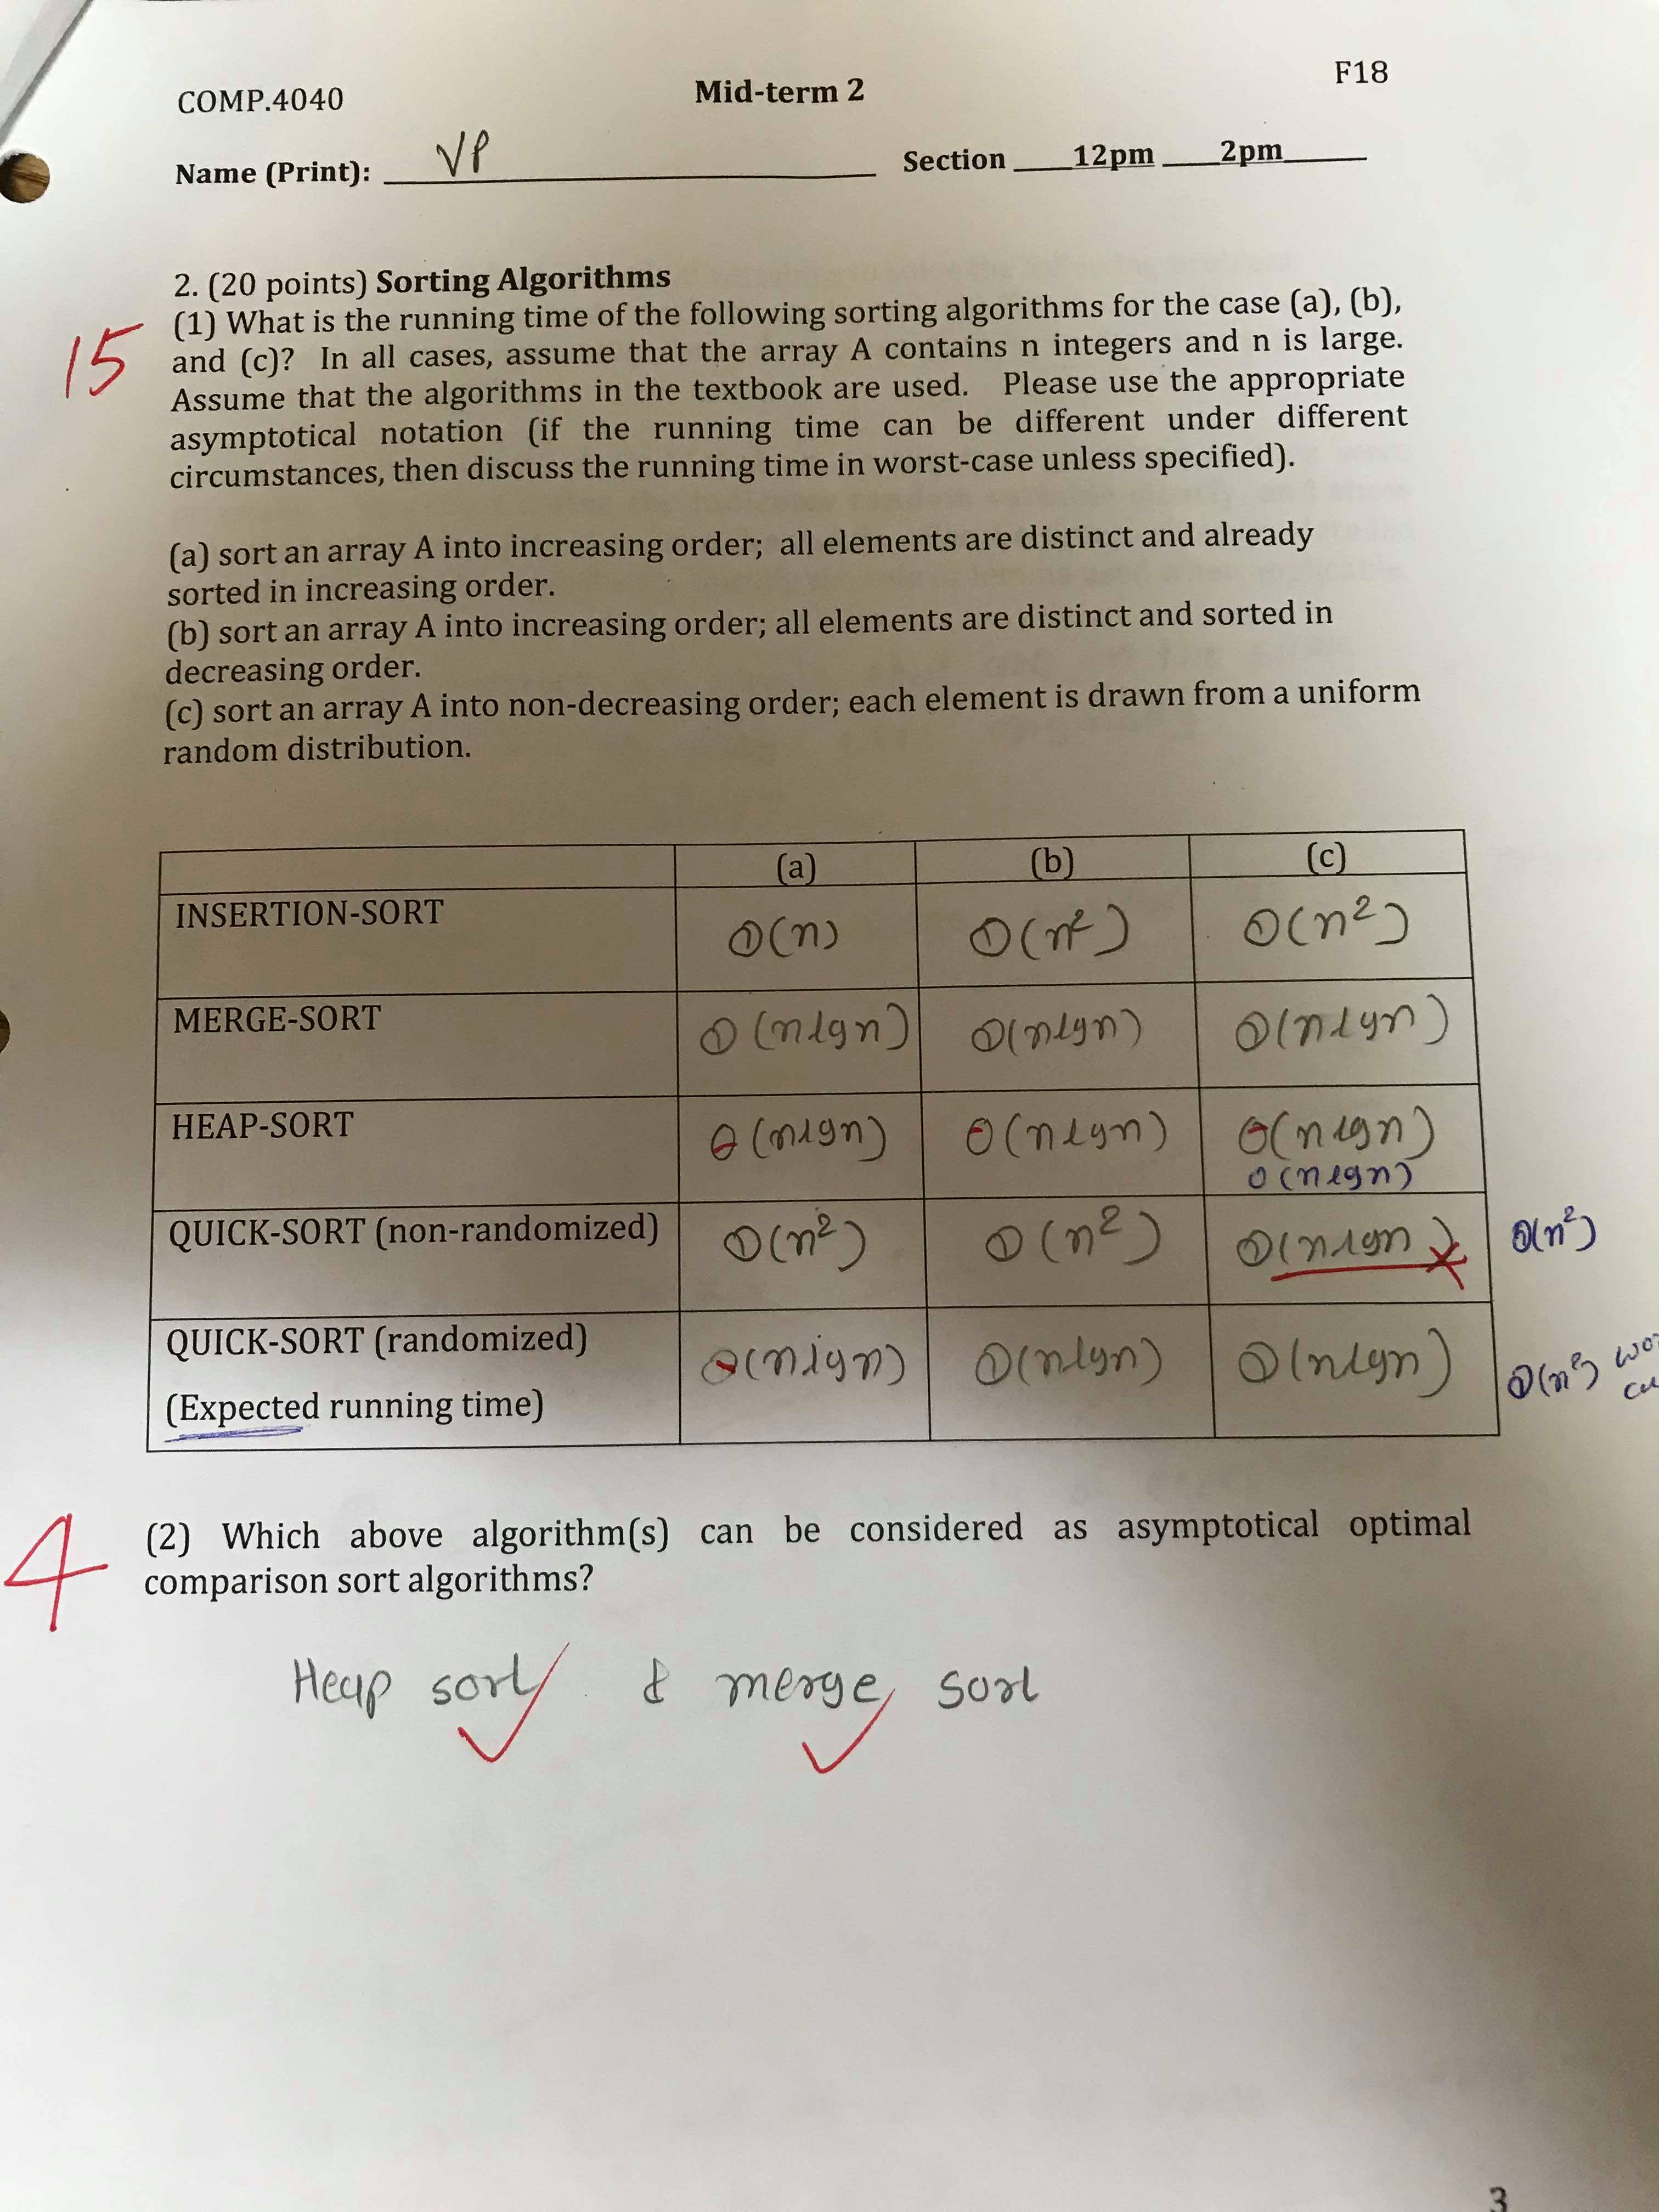 F18
COMP.4040 Mid-term 2
Name (Print): VP Section 12pm 2pm
2. (20 points) Sorting Algorithms
15
(1) What is the running time of the following sorting algorithms for the case (a), (b),
and (c)? In all cases, assume that the array A contains n integers and n is large.
Assume that the algorithms in the textbook are used. Please use the appropriate
asymptotical notation (if the running time can be different under different
circumstances, then discuss the running time in worst-case unless specified).
(a) sort an array A into increasing order; all elements are distinct and already
sorted in increasing order.
(b) sort an array A into increasing order; all elements are distinct and sorted in
decreasing order.
(c) sort an array A into non-decreasing order; each element is drawn from a uniform
random distribution.
(a) (b) (c)
INSERTION-SORT Θ(n) Θ(n²) Θ(n²)
MERGE-SORT Θ(nlgn) Θ(nlgn) Θ(nlgn)
HEAP-SORT Θ(nlgn) Θ(nlgn) Θ(nlgn)
O(nlgn)
QUICK-SORT (non-randomized) Θ(n²) Θ(n²) Θ(nlgn) Θ(n²)
QUICK-SORT (randomized) Θ(nlgn) Θ(nlgn) Θ(nlgn) Θ(n²)
(Expected running time)
4
(2) Which above algorithm(s) can be considered as asymptotical optimal
comparison sort algorithms?
Heap sort & merge sort
3